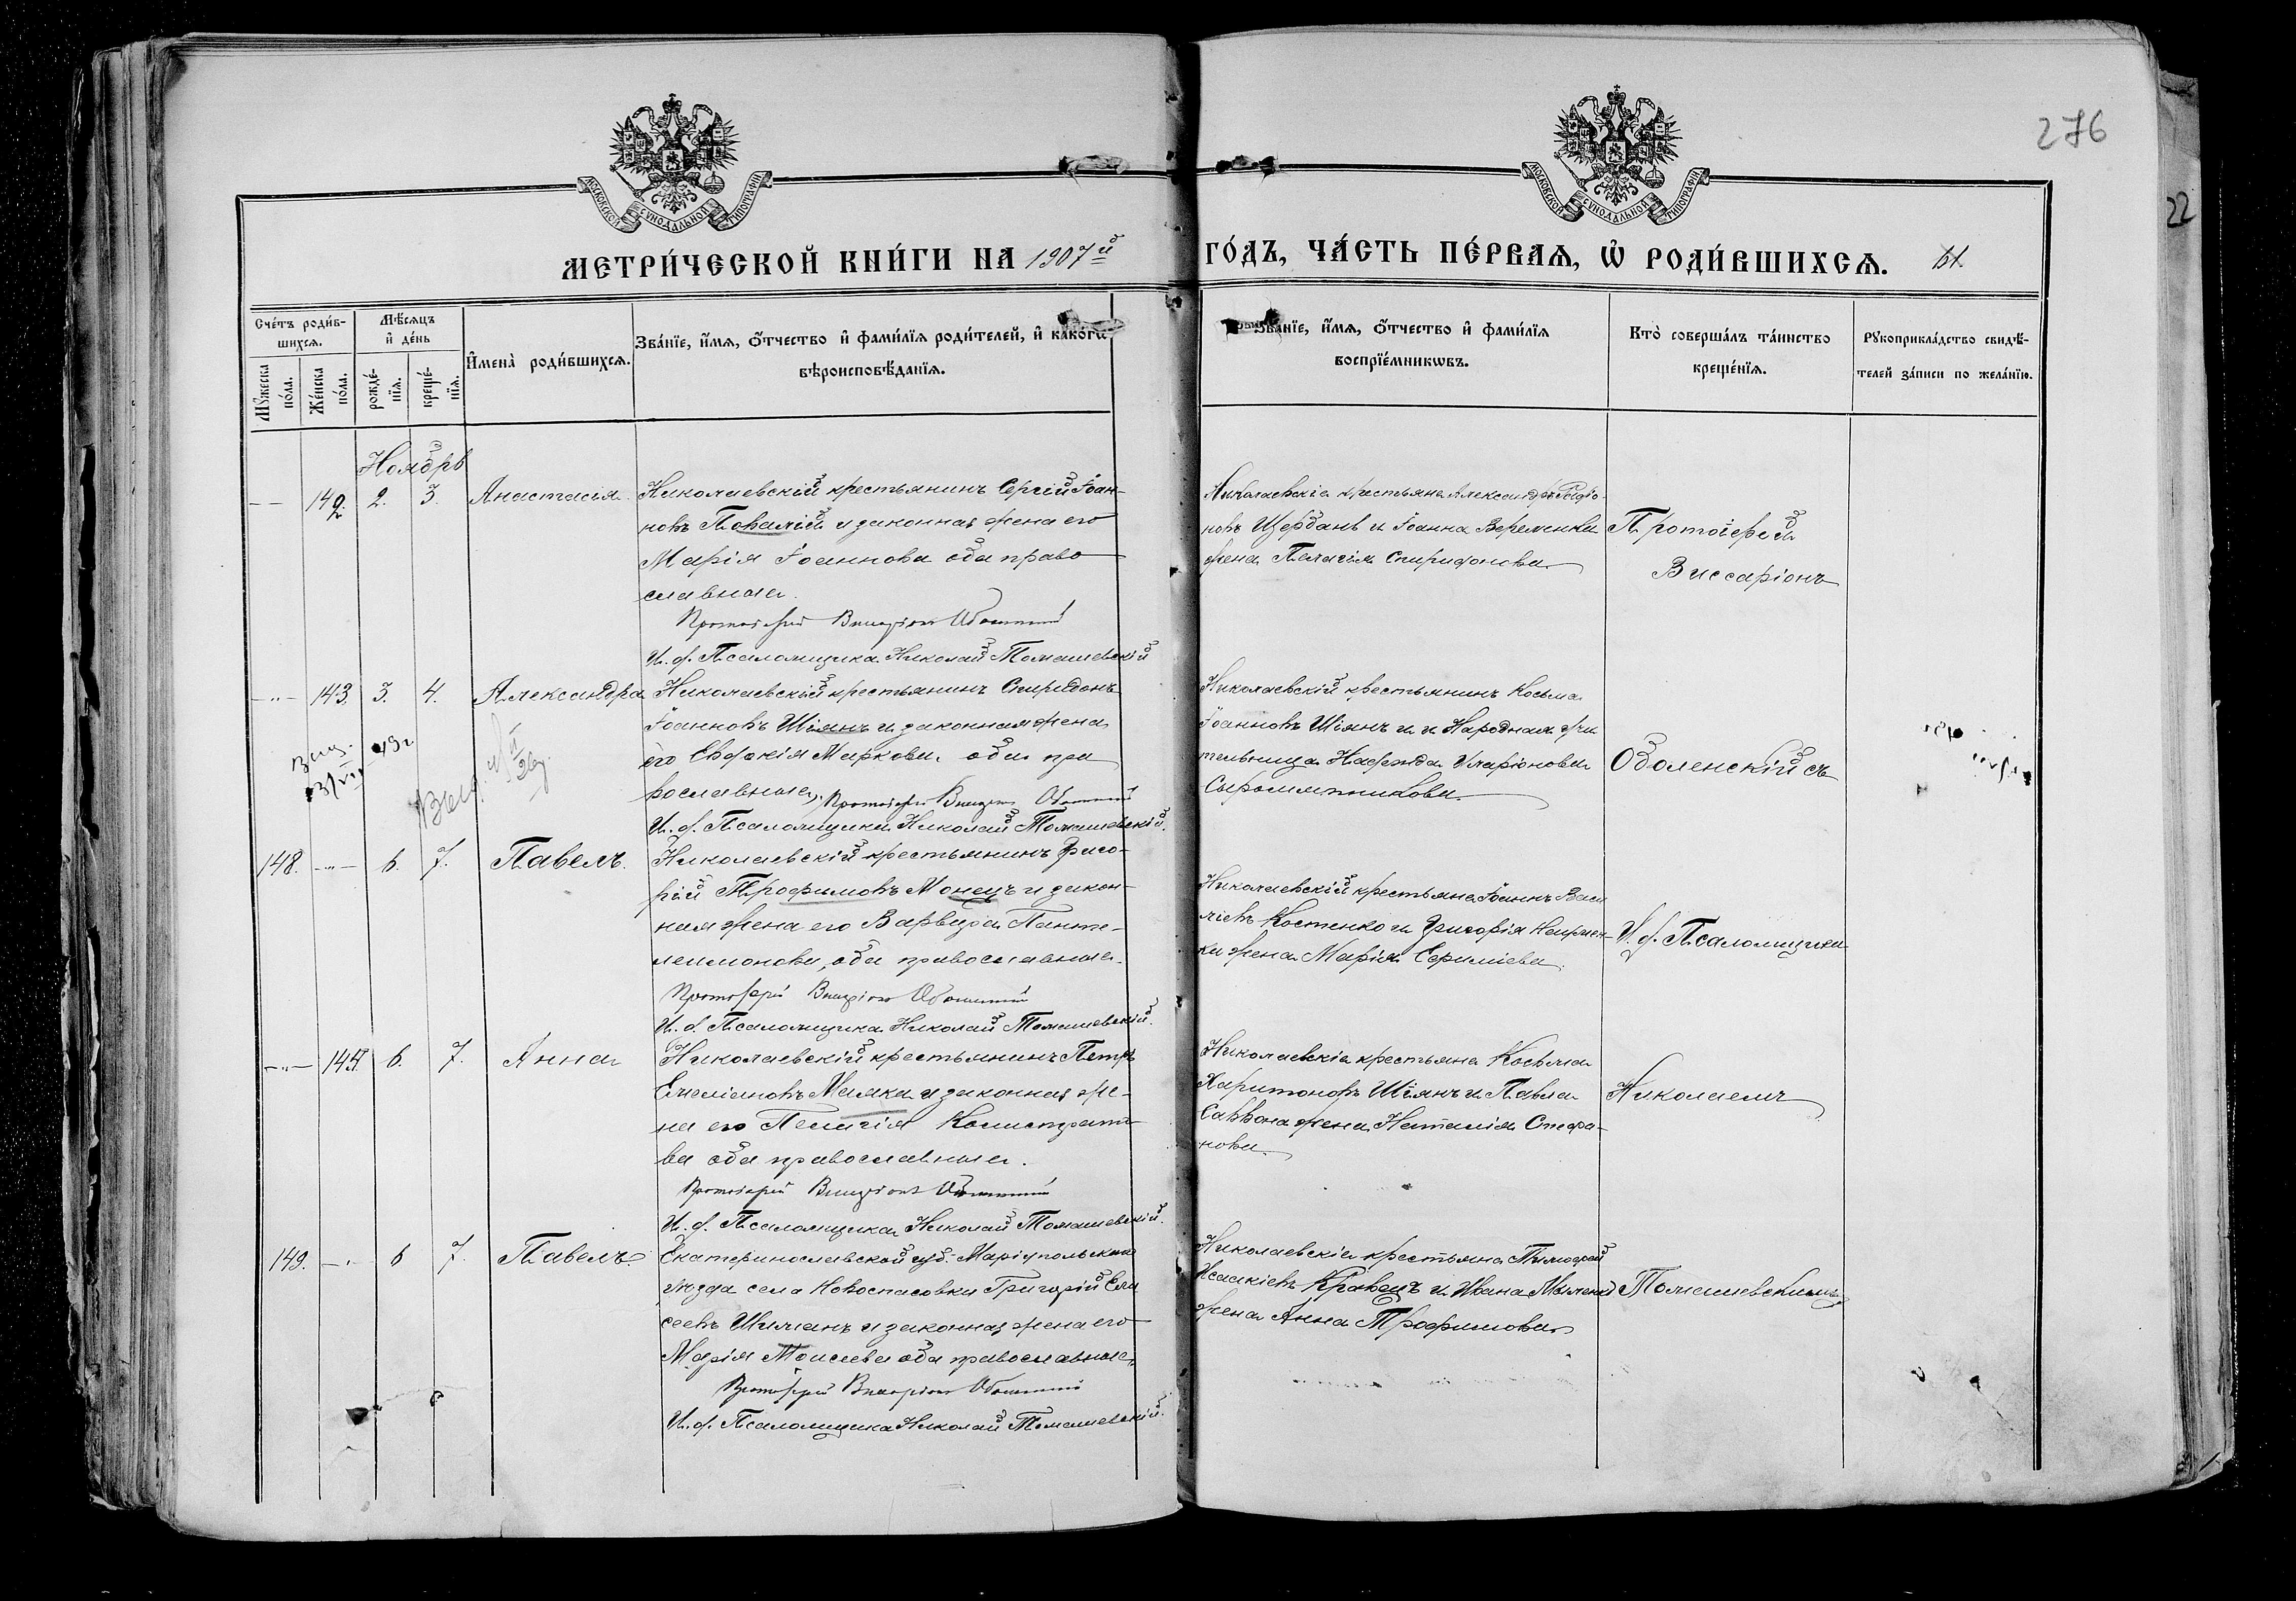 276
22
МОСКОВСКОЙ СѴНОДАЛЬНОЙ ТИПОГРАФІИ
МОСКОВСКОЙ СѴНОДАЛЬНОЙ ТИПОГРАФІИ
МЕТРИ́ЧЕСКОЙ КНИ́ГИ НА 1907й
ГО́ДЪ, ЧА́СТЬ ПЕ́РВАѦ, Ѡ҆ РОДИ́ВШИХСѦ.
Сче́тъ роди́в-
шихсѧ.
Мꙋ́жеска по́ла.
Же́нска по́ла.
Мѣ́сѧцъ и҆ де́нь
рожде́-нїѧ.
креще́-нїѧ.
И҆мена̀ роди́вшихсѧ.
Зва́нїе, и҆́мѧ, ѻ҆́тчество и҆ фами́лїѧ роди́телей, и҆ како́гѡ
вѣроисповѣ́данїѧ.
Зва́нїе, и҆́мѧ, ѻ҆́тчество и҆ фами́лїѧ
воспрїе́мникѡвъ.
Кто̀ соверша́лъ та́инство
креще́нїѧ.
Рꙋкоприкла́дство свидѣ́-
телей за́писи по жела́нїю.
Ноябрь
142. 2. 3. Анастасія
Николаевскій крестьянинъ Сергій Іоан-
новъ Повалій и законная жена его
Марія Іоаннова оба право
славные.
Протоіерей Виссаріонъ Оболенскій
И. д. Псаломщика Николай Томашевскій
Николаевскіе крестьяне Александръ Родіо-
новъ Щербань и Іоанна Веременки
жена Пелагія Спиридонова
Протоіерей
Виссаріонъ
143. 3. 4. Александра
Николаевскій крестьянинъ Спиридонъ
Іоанновъ Шіянъ и законная жена
его Евдокія Маркова, оба пра
вославные. Протоіерей Виссаріонъ Оболенскій
И. д. Псаломщика Николай Томашевскій.
Николаевскій крестьянинъ Косьма
Іоанновъ Шіянъ и Народная учи
тельница Надежда Иларіонова
Сыромятникова
Оболенскій съ
148. 6. 7. Павелъ.
Николаевскій крестьянинъ Григо-
рій Трофимовъ Монецъ и закон-
ная жена его Варвара Панте-
леимонова, оба православные.
Протоіерей Виссаріонъ Оболенскій
И. д. Псаломщика Николай Томашевскій.
Николаевскій крестьяне Іоаннъ Васи
ліевъ Костенко и Григорія
жена Марія
И. д. Псаломщика
144. 6. 7. Анна
Николаевскій крестьянинъ Петръ
Емеліановъ Малка и законная же-
на его Пелагія Калистрато-
ва оба православные.
Протоіерей Виссаріонъ Оболенскій
И. д. Псаломщика Николай Томашевскій.
Николаевскіе крестьяне Косьма
Харитоновъ Шіянъ и Павла
Саввона жена Наталія Стефа-
нова
Николаемъ
149. 6 7. Павелъ.
Екатеринославской губ. Маріупольскаго
уѣзда села Новоспасовки Григорій Ели
сеевъ Шиманъ и законная жена его
Марія Моисеева оба православные,
Протоіерей Виссаріонъ Оболенскій
И. д. Псаломщика Николай Томашевскій.
Николаевскіе крестьяне Тимофей
Исаакіевъ Кравецъ и Ивана
жена Анна Трофимова
Томашевскимъ